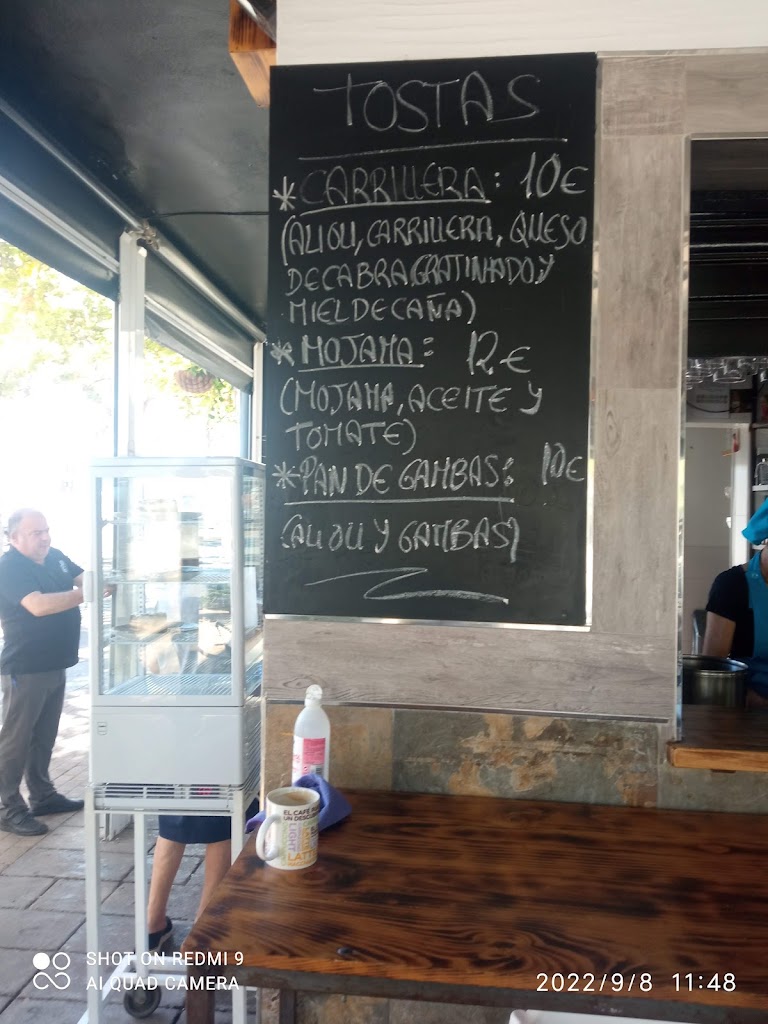 TOSTAS
* CARRILLERA: 10€
(ALIOLI, CARRILLERA, QUESO
DE CABRA GRATINADO Y
MIEL DE CAÑA)
* MOJAMA: 12€
(MOJAMA, ACEITE Y
TOMATE)
* PAN DE GAMBAS: 10€
(ALIOLI Y GAMBAS)
EL CAFÉ
UN DESC
LIGHT
LATT
SHOT ON REDMI 9
AI QUAD CAMERA
2022/9/8 11:48